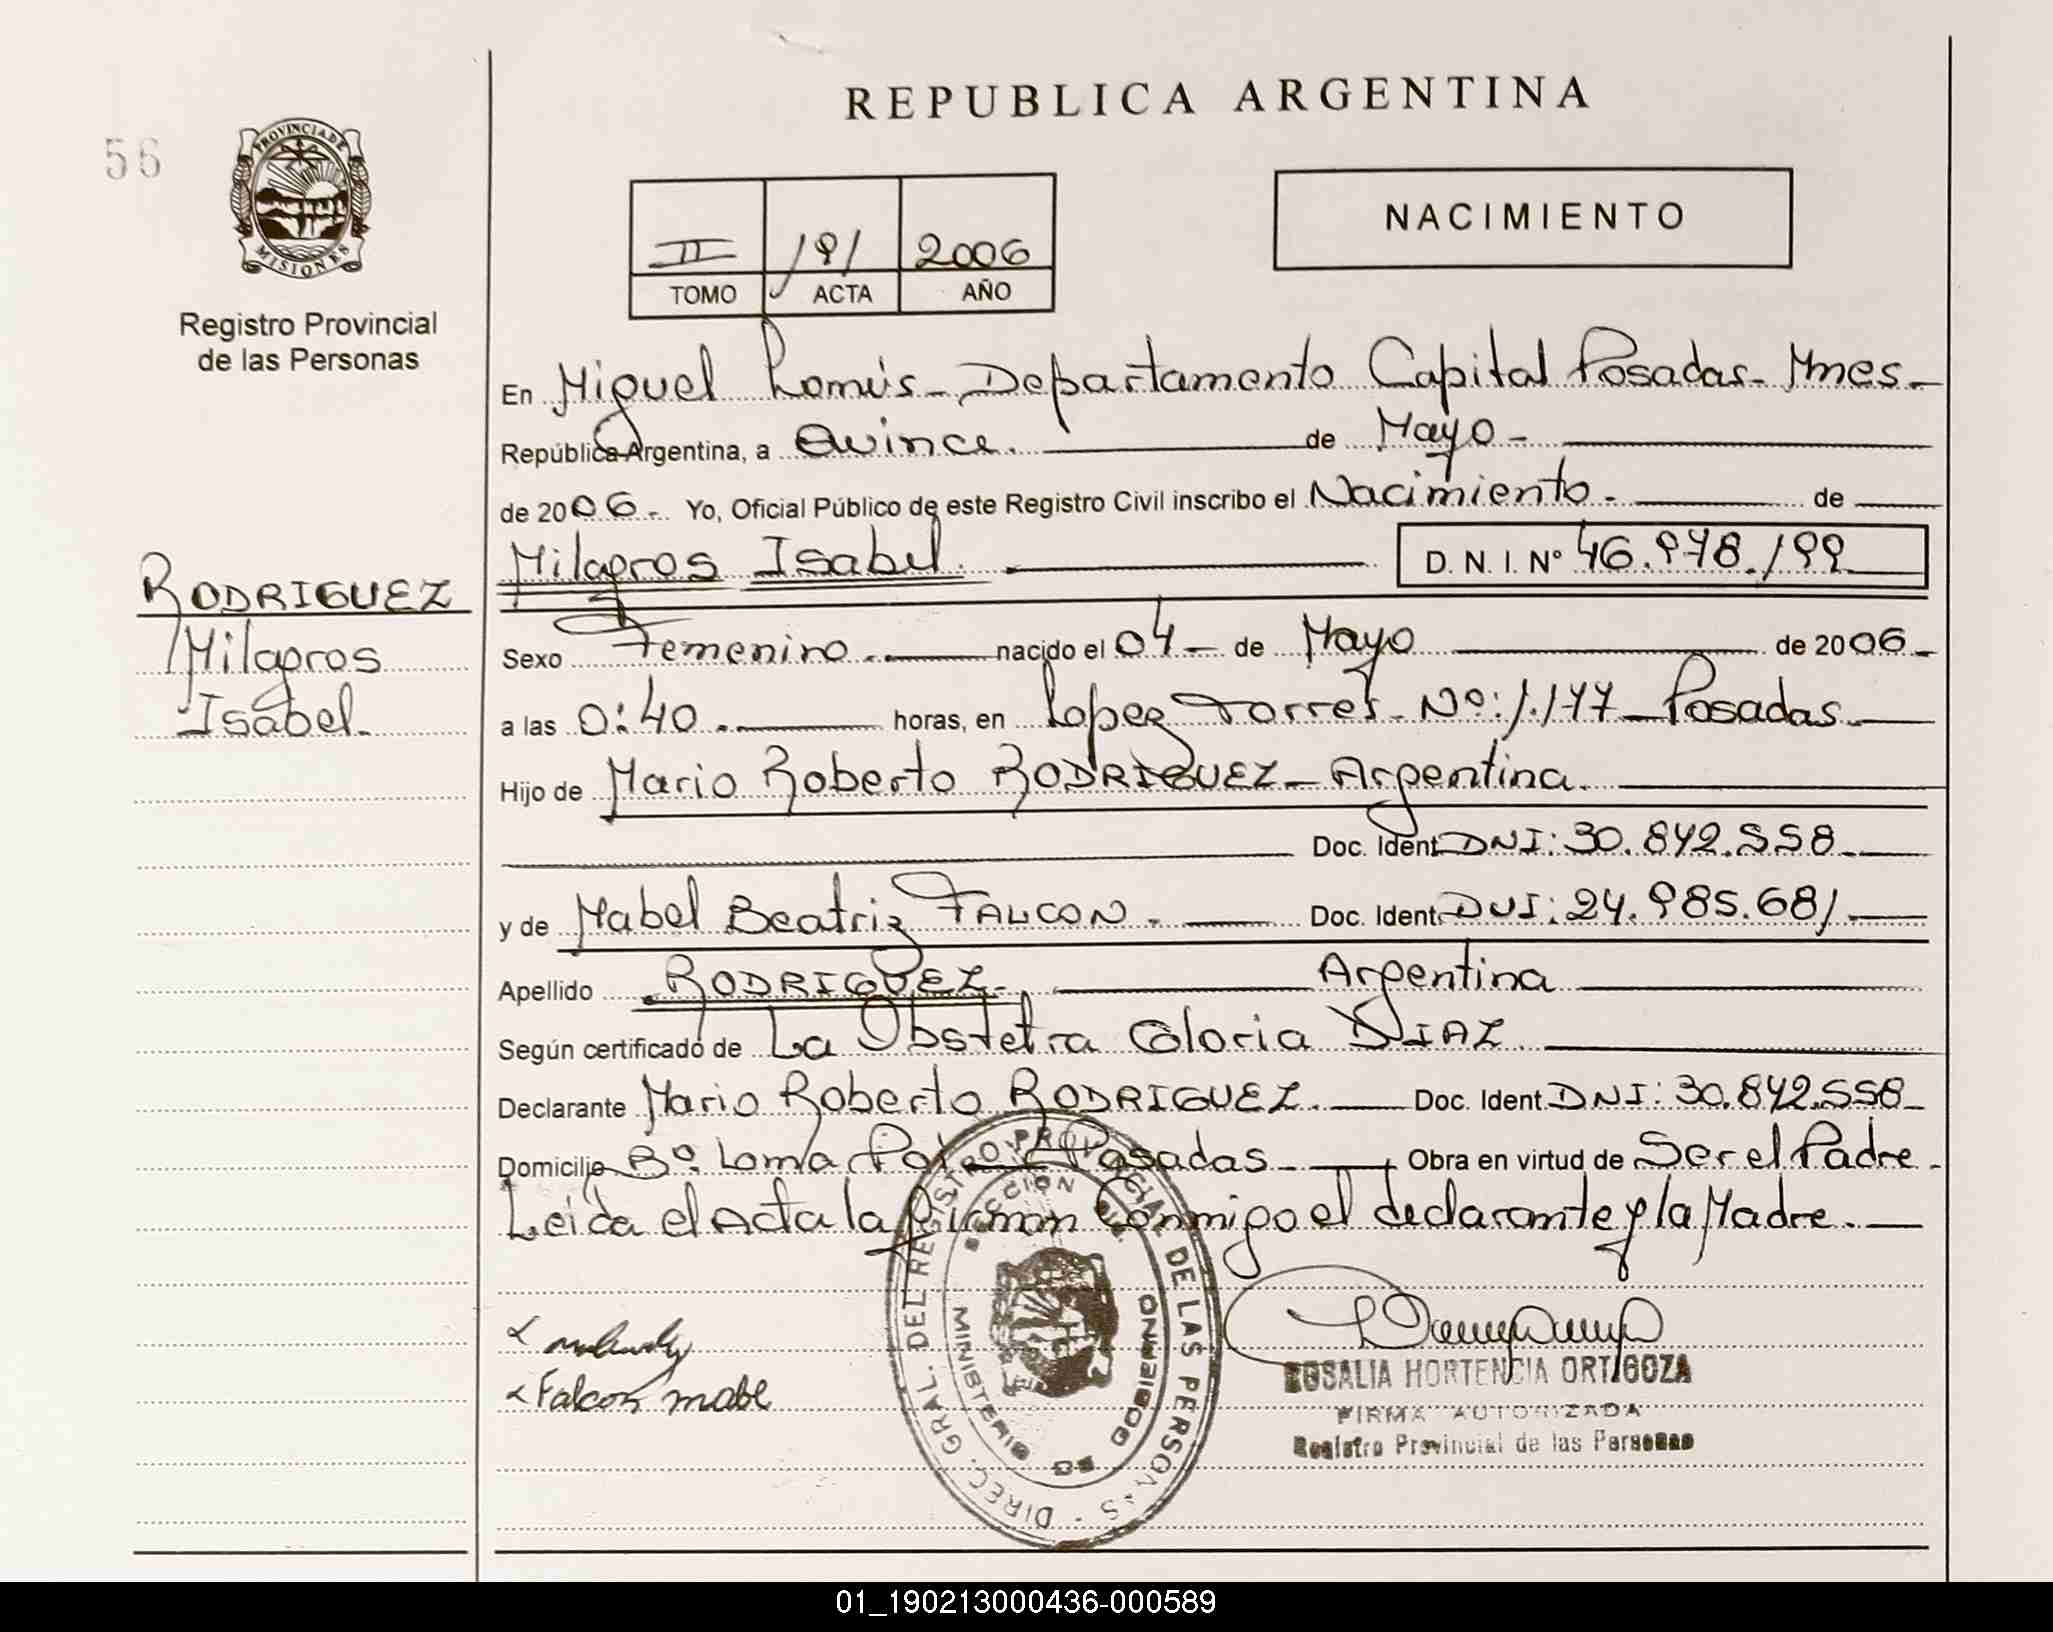 56
PROVINCIA DE
MISIONES
Registro Provincial
de las Personas
REPUBLICA ARGENTINA
NACIMIENTO
II 191 2006
TOMO ACTA AÑO
En Miguel Lanús - Departamento Capital Posadas - Mnes -
República Argentina, a Quince. de Mayo -
de 2006 - Yo, Oficial Público de este Registro Civil inscribo el Nacimiento - de
Milagros Isabel. D. N. I. Nº 46.978.199
RODRIGUEZ
Milagros
Isabel
Sexo Femenino. nacido el 04 - de Mayo de 2006 -
a las 0:40. horas, en Lopez Torres Nº: 1.177 - Posadas
Hijo de Mario Roberto RODRIGUEZ - Argentina.
Doc. Ident. DNI: 30.842.558
y de Mabel Beatriz FALCON. Doc. Ident. DNI: 24.985.681
Apellido RODRIGUEZ - Argentina
Según certificado de La Obstetra Gloria DIAZ
Declarante Mario Roberto RODRIGUEZ. Doc. Ident. DNI: 30.842.558
Domicilio Bº. Loma Posadas - Obra en virtud de Ser el Padre -
Leida el Acta la Firman Conmigo el declarante y la Madre.
Falcon mabel
DIREC. GRAL. DEL REGISTRO PROVINCIAL DE LAS PERSONAS
MINISTERIO DE GOBIERNO
ROSALIA HORTENCIA ORTIGOZA
FIRMA AUTORIZADA
Registro Provincial de las Personas
01_190213000436-000589